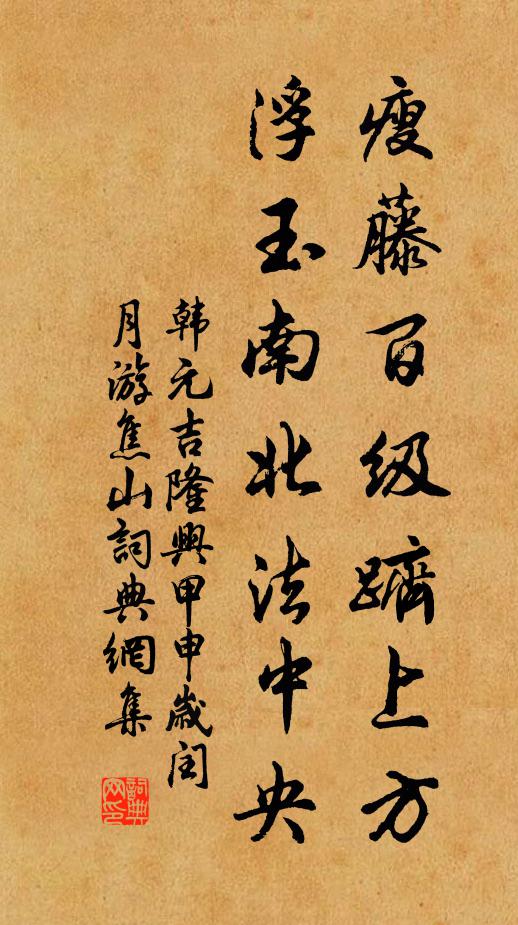 瘦藤百级躋上方
浮玉南北法中央
韩元吉隆興甲申歲闰
月游焦山詞典網集
詞典网印